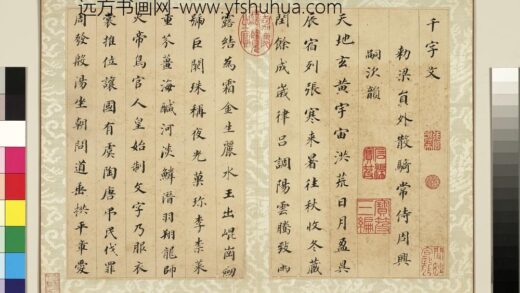 远方书画网-www.yfshuhua.com
千字文
勑梁員外散騎常侍周興
嗣次韻
天地玄黃宇宙洪荒日月盈昃
辰宿列張寒来暑往秋收冬藏
閏餘成歲律吕調陽雲騰致雨
露結為霜金生麗水玉出崐崗劒
號巨闕珠稱夜光菓珍李柰菜
重芥薑海鹹河淡鱗潛羽翔龍師
火帝鳥官人皇始制文字乃服衣
裳推位讓國有虞陶唐弔民伐罪
周發殷湯坐朝問道垂拱平章愛
寶笈
三編